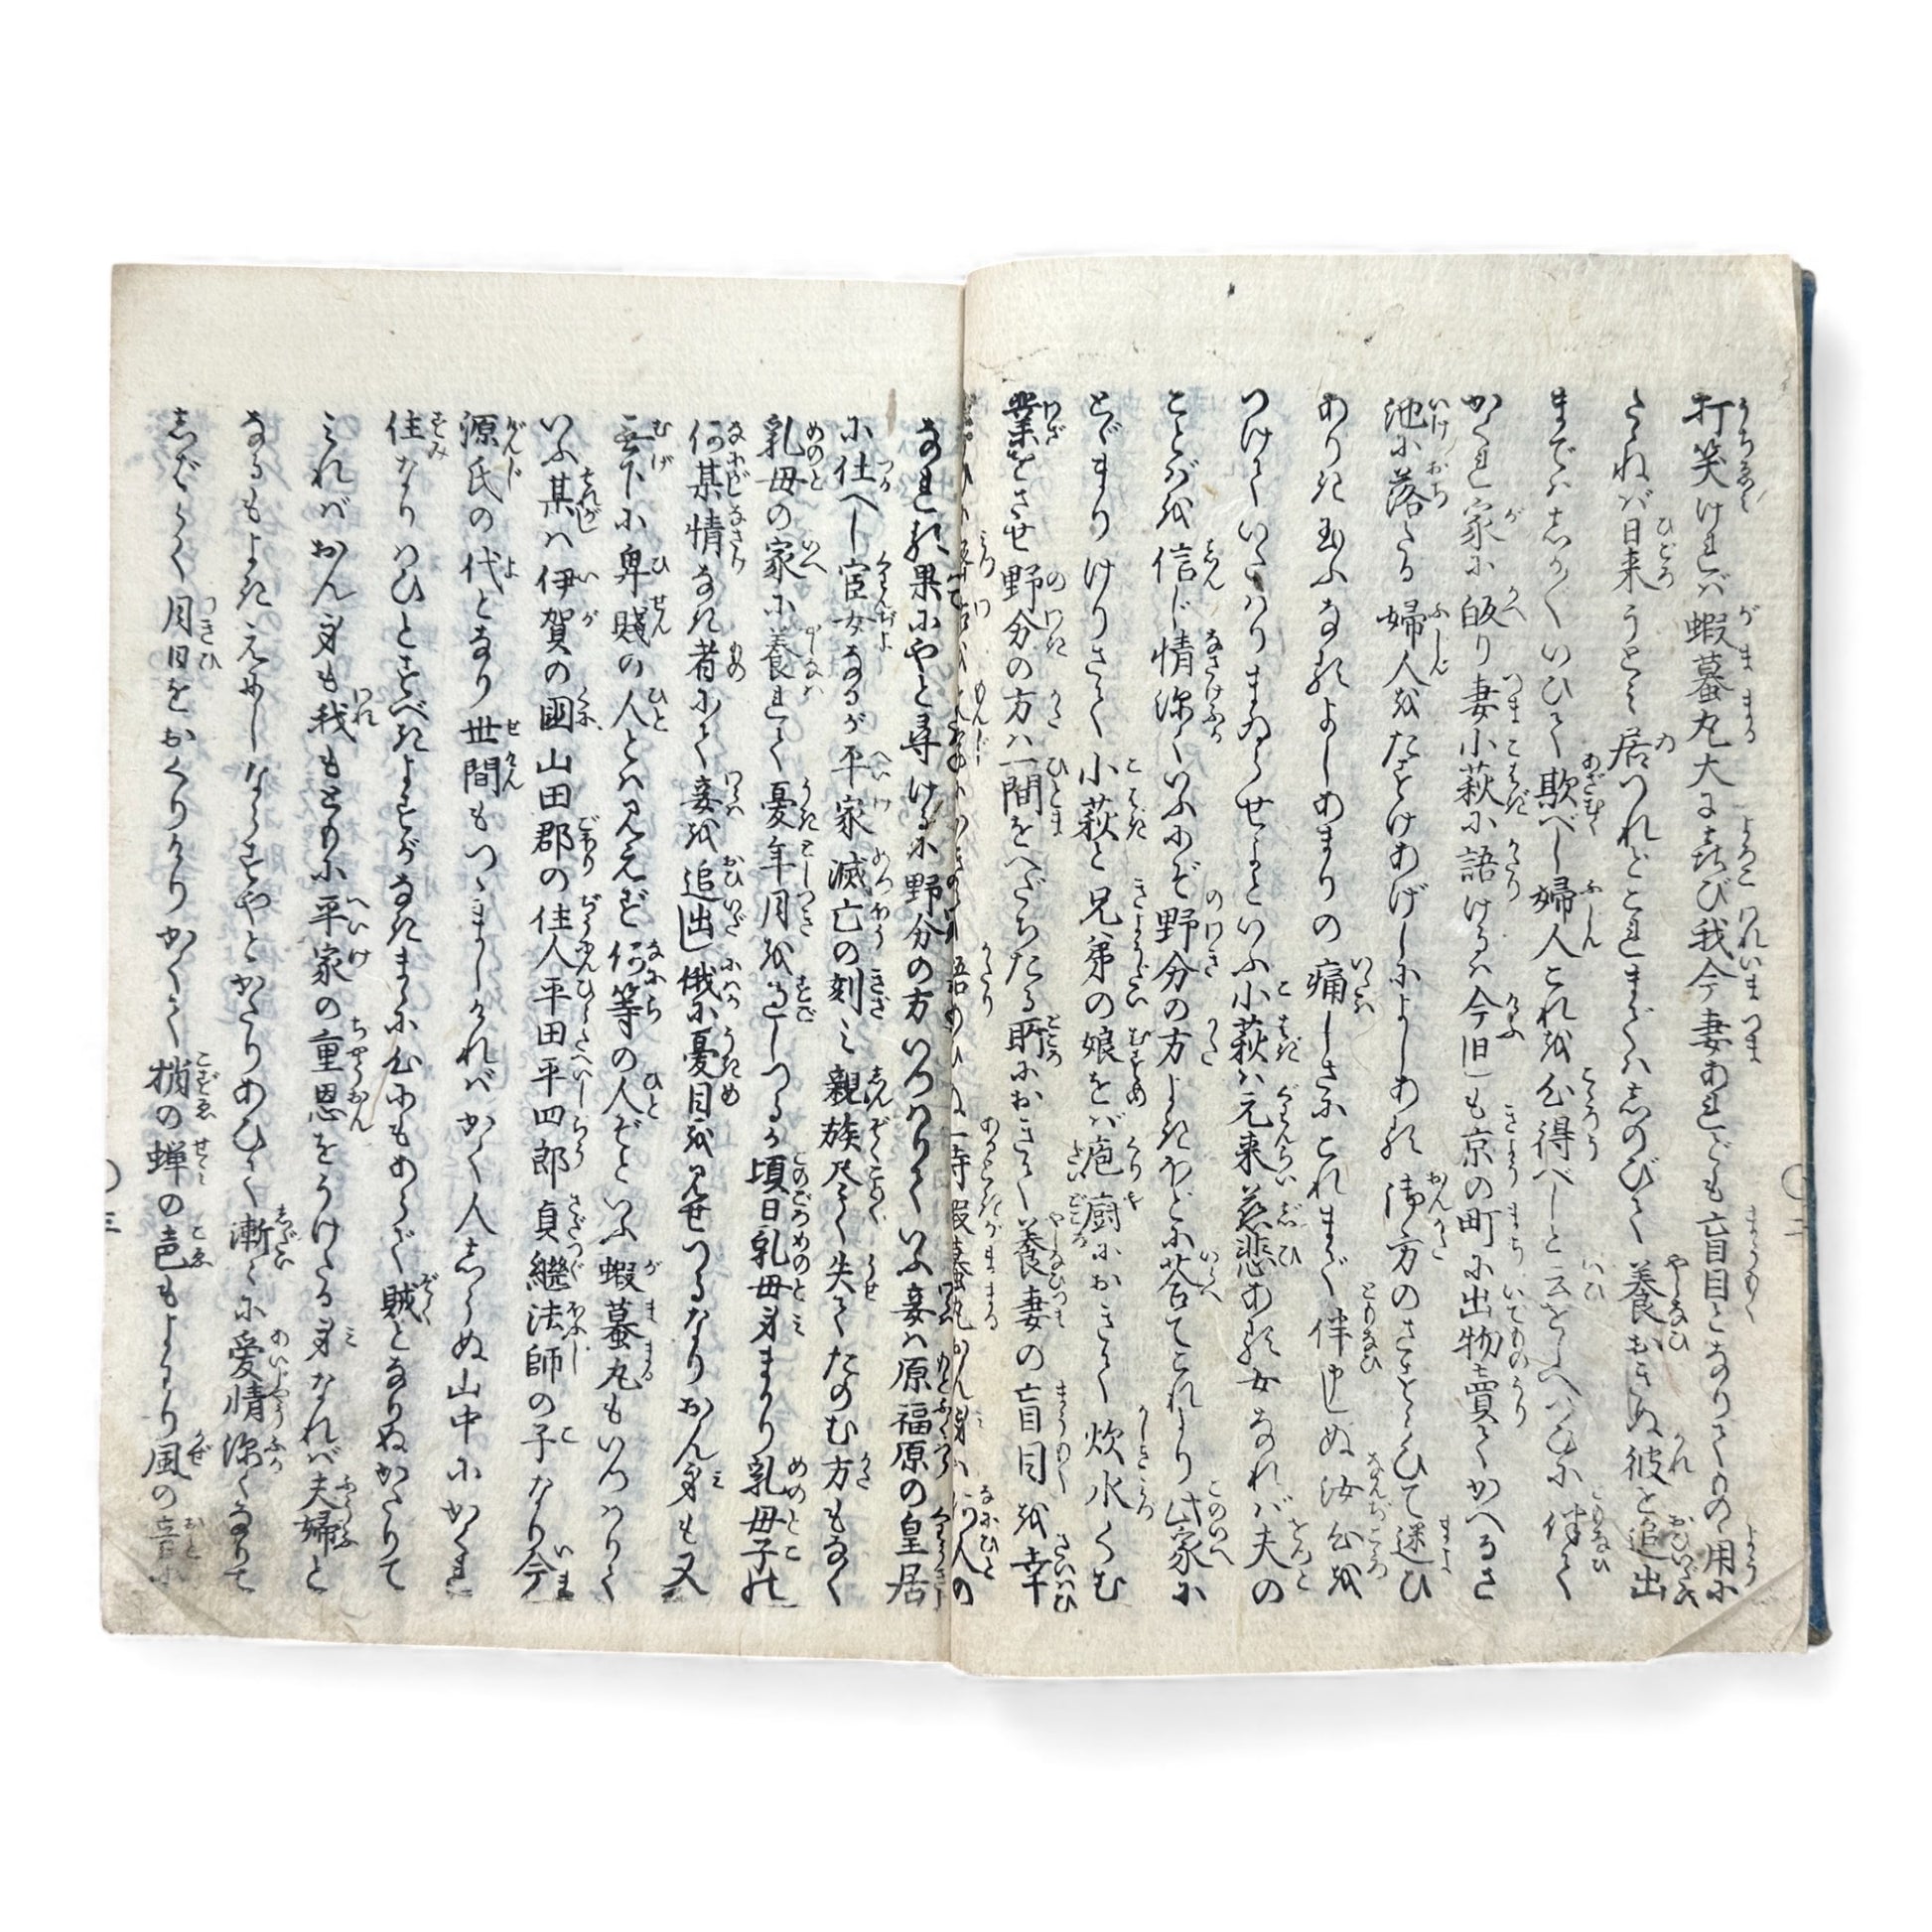 打笑けれバ蝦蟇丸大に喜び我今妻あれども盲目となりてものゝ用に
たゝねバ日来うとミ居つれどこれまでハ志のびて養おきぬ彼を追出
までハ志か〳〵いひて欺べし婦人これを心得べしと云をしへつひに伴て
かくれ家に皈り妻小萩に語けるハ今日も京の町に出物賣てかへるさ
池に落たる婦人をたすけあげしによしある御方のさまよひて迷ひ
ありき玉ふなるよしあまりの痛しさにこれまで伴申ぬ汝心を
つけていたハりまゐらせよといふ小萩ハ元来慈悲ある女なれバ夫の
ことバを信じ情深くいふにぞ野分の方よきほどに荅てこれより此家に
とゞまりけりさて小萩と兄弟の娘をバ庖廚におきて炊水くむ
業をさせ野分の方ハ一間をへだちたる所におきて養妻の盲目を幸
一時蝦蟇丸おん身ハ何人の
なれる果にやと尋けるに野分の方いつハりていふ妾ハ原福原の皇居
に仕へし官女なるが平家滅亡の刻ミ親族尽く失てたのむ方もなく
乳母の家に養れて憂年月を過しつるが頃日乳母身まかり乳母子の
何某情なき者にて妾を追出し俄に憂目を見せつるなりおん身も又
無下に卑賤の人とハ見えず何等の人ぞといふ蝦蟇丸もいつハりて
いふ某ハ伊賀の國山田郡の住人平田平四郎貞継法師の子なり今
源氏の代となり世間もつゝましけれバかく人志らぬ山中にかくれ
住なりハひとすべきよすがなきまゝに心にもあらで賊となりぬかたりて
ミれバおん身も我もともに平家の重恩をうけたる身なれバ夫婦と
なるもよきえにしならずやとかたりあひて漸々に愛情深くなりて
志ばらく月日をおくりけりかくて梢の蝉の声もよわり風の音に